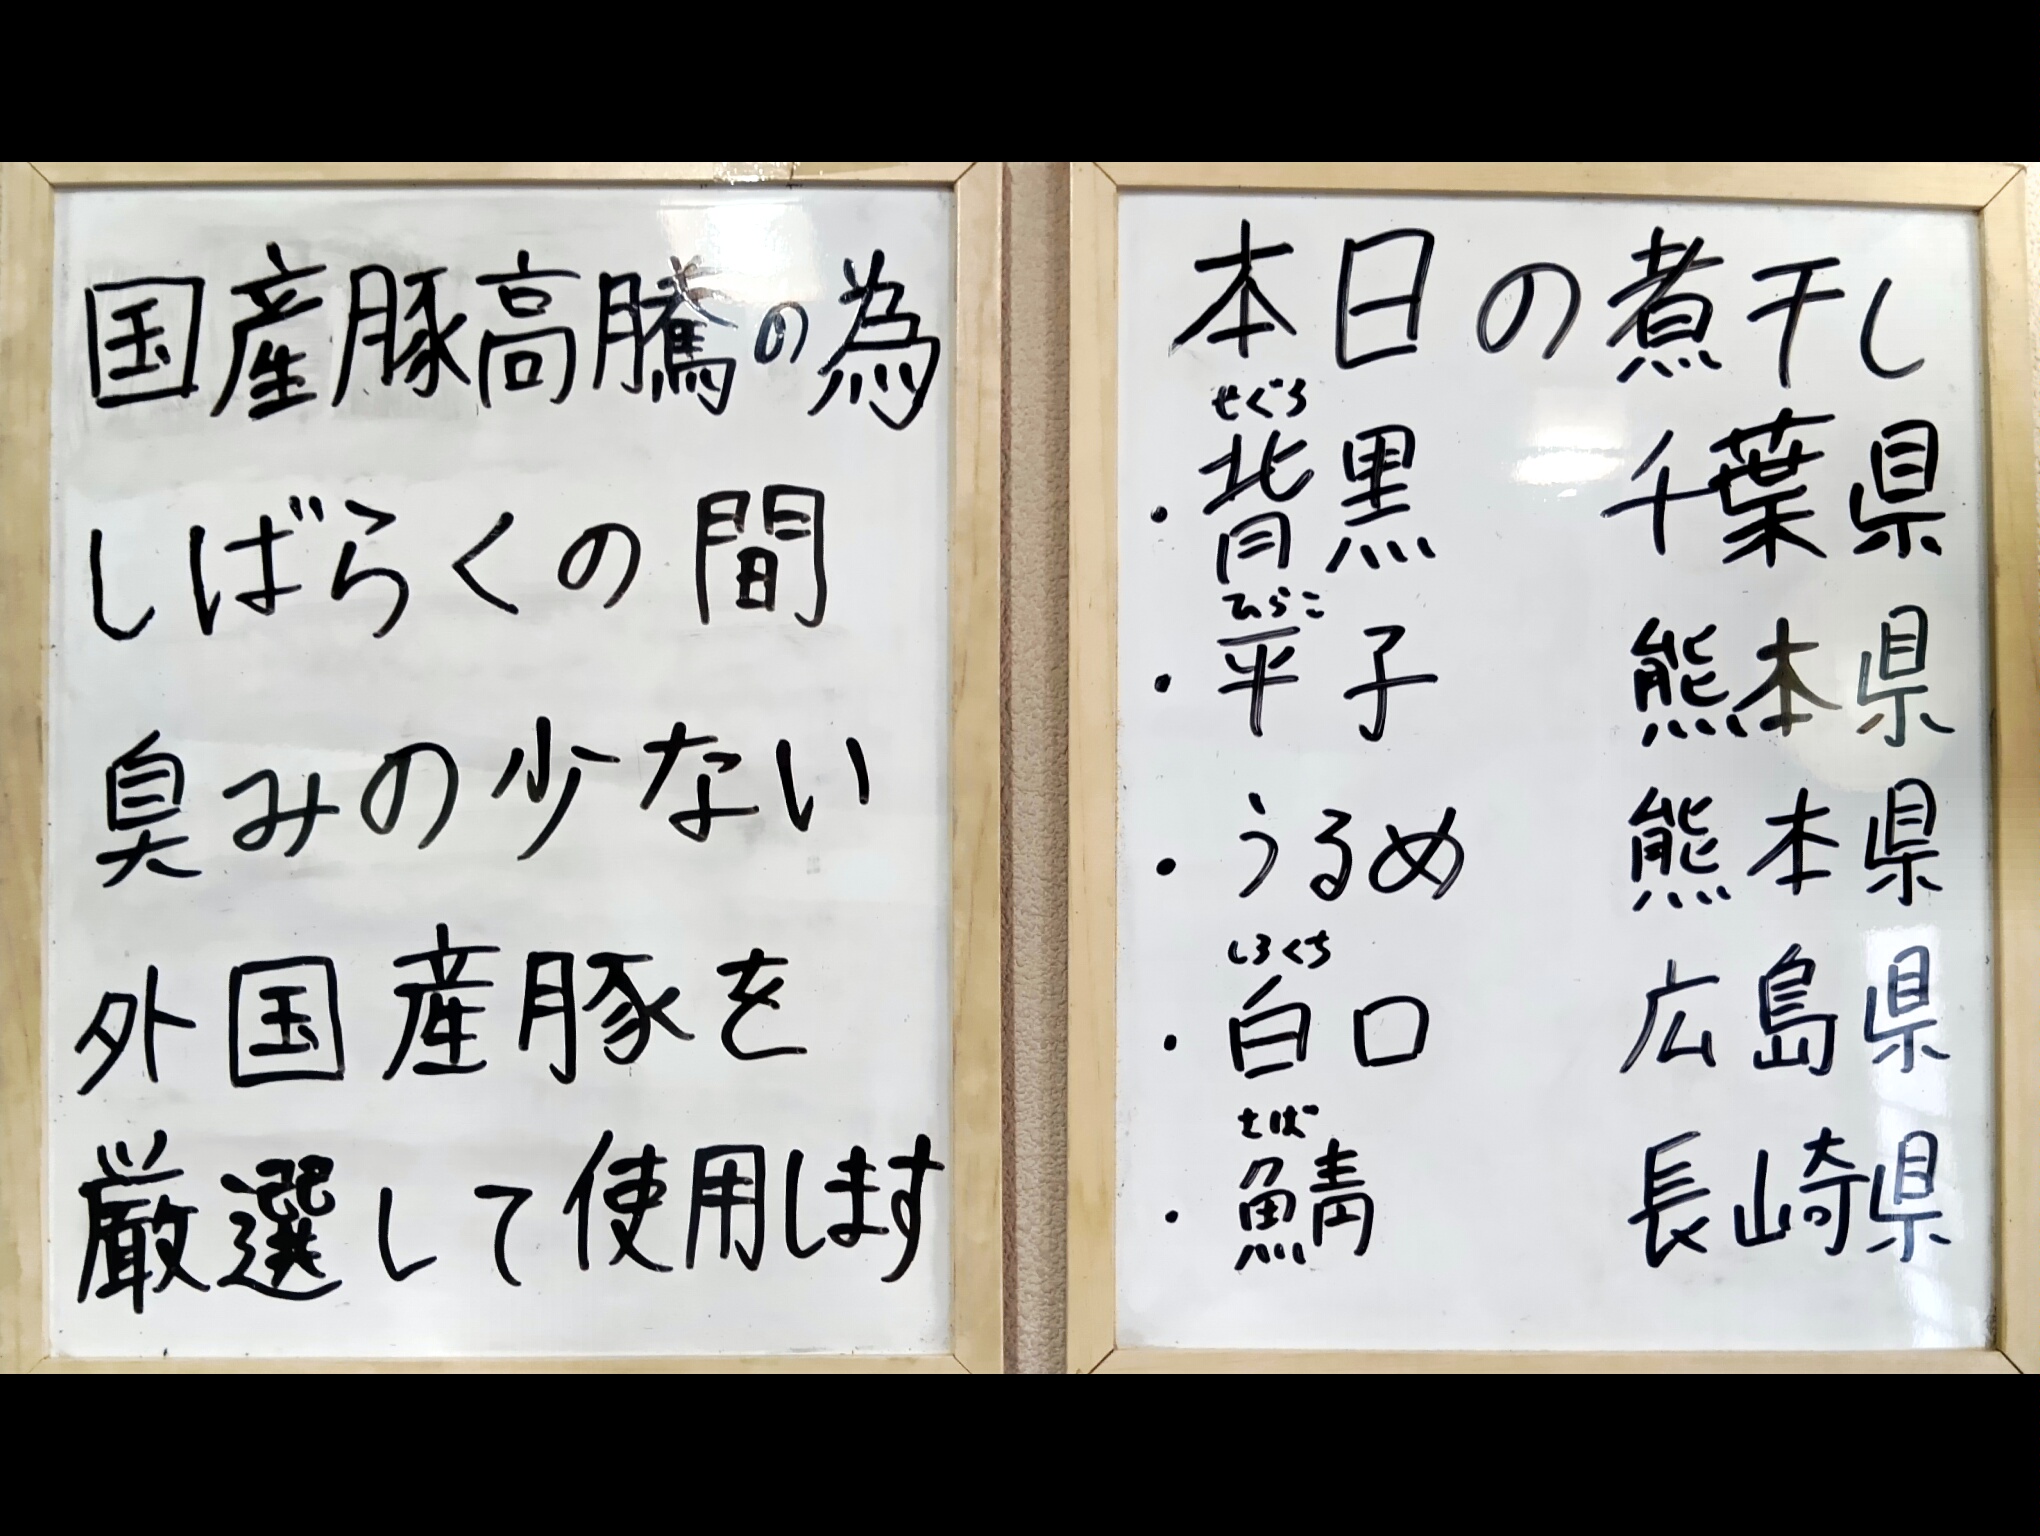 国産豚高騰の為
しばらくの間
臭みの少ない
外国産豚を
厳選して使用します
本日の煮干し
せぐろ
・背黒 千葉県
ひらこ
・平子 熊本県
・うるめ 熊本県
しろくち
・白口 広島県
さば
・鯖 長崎県